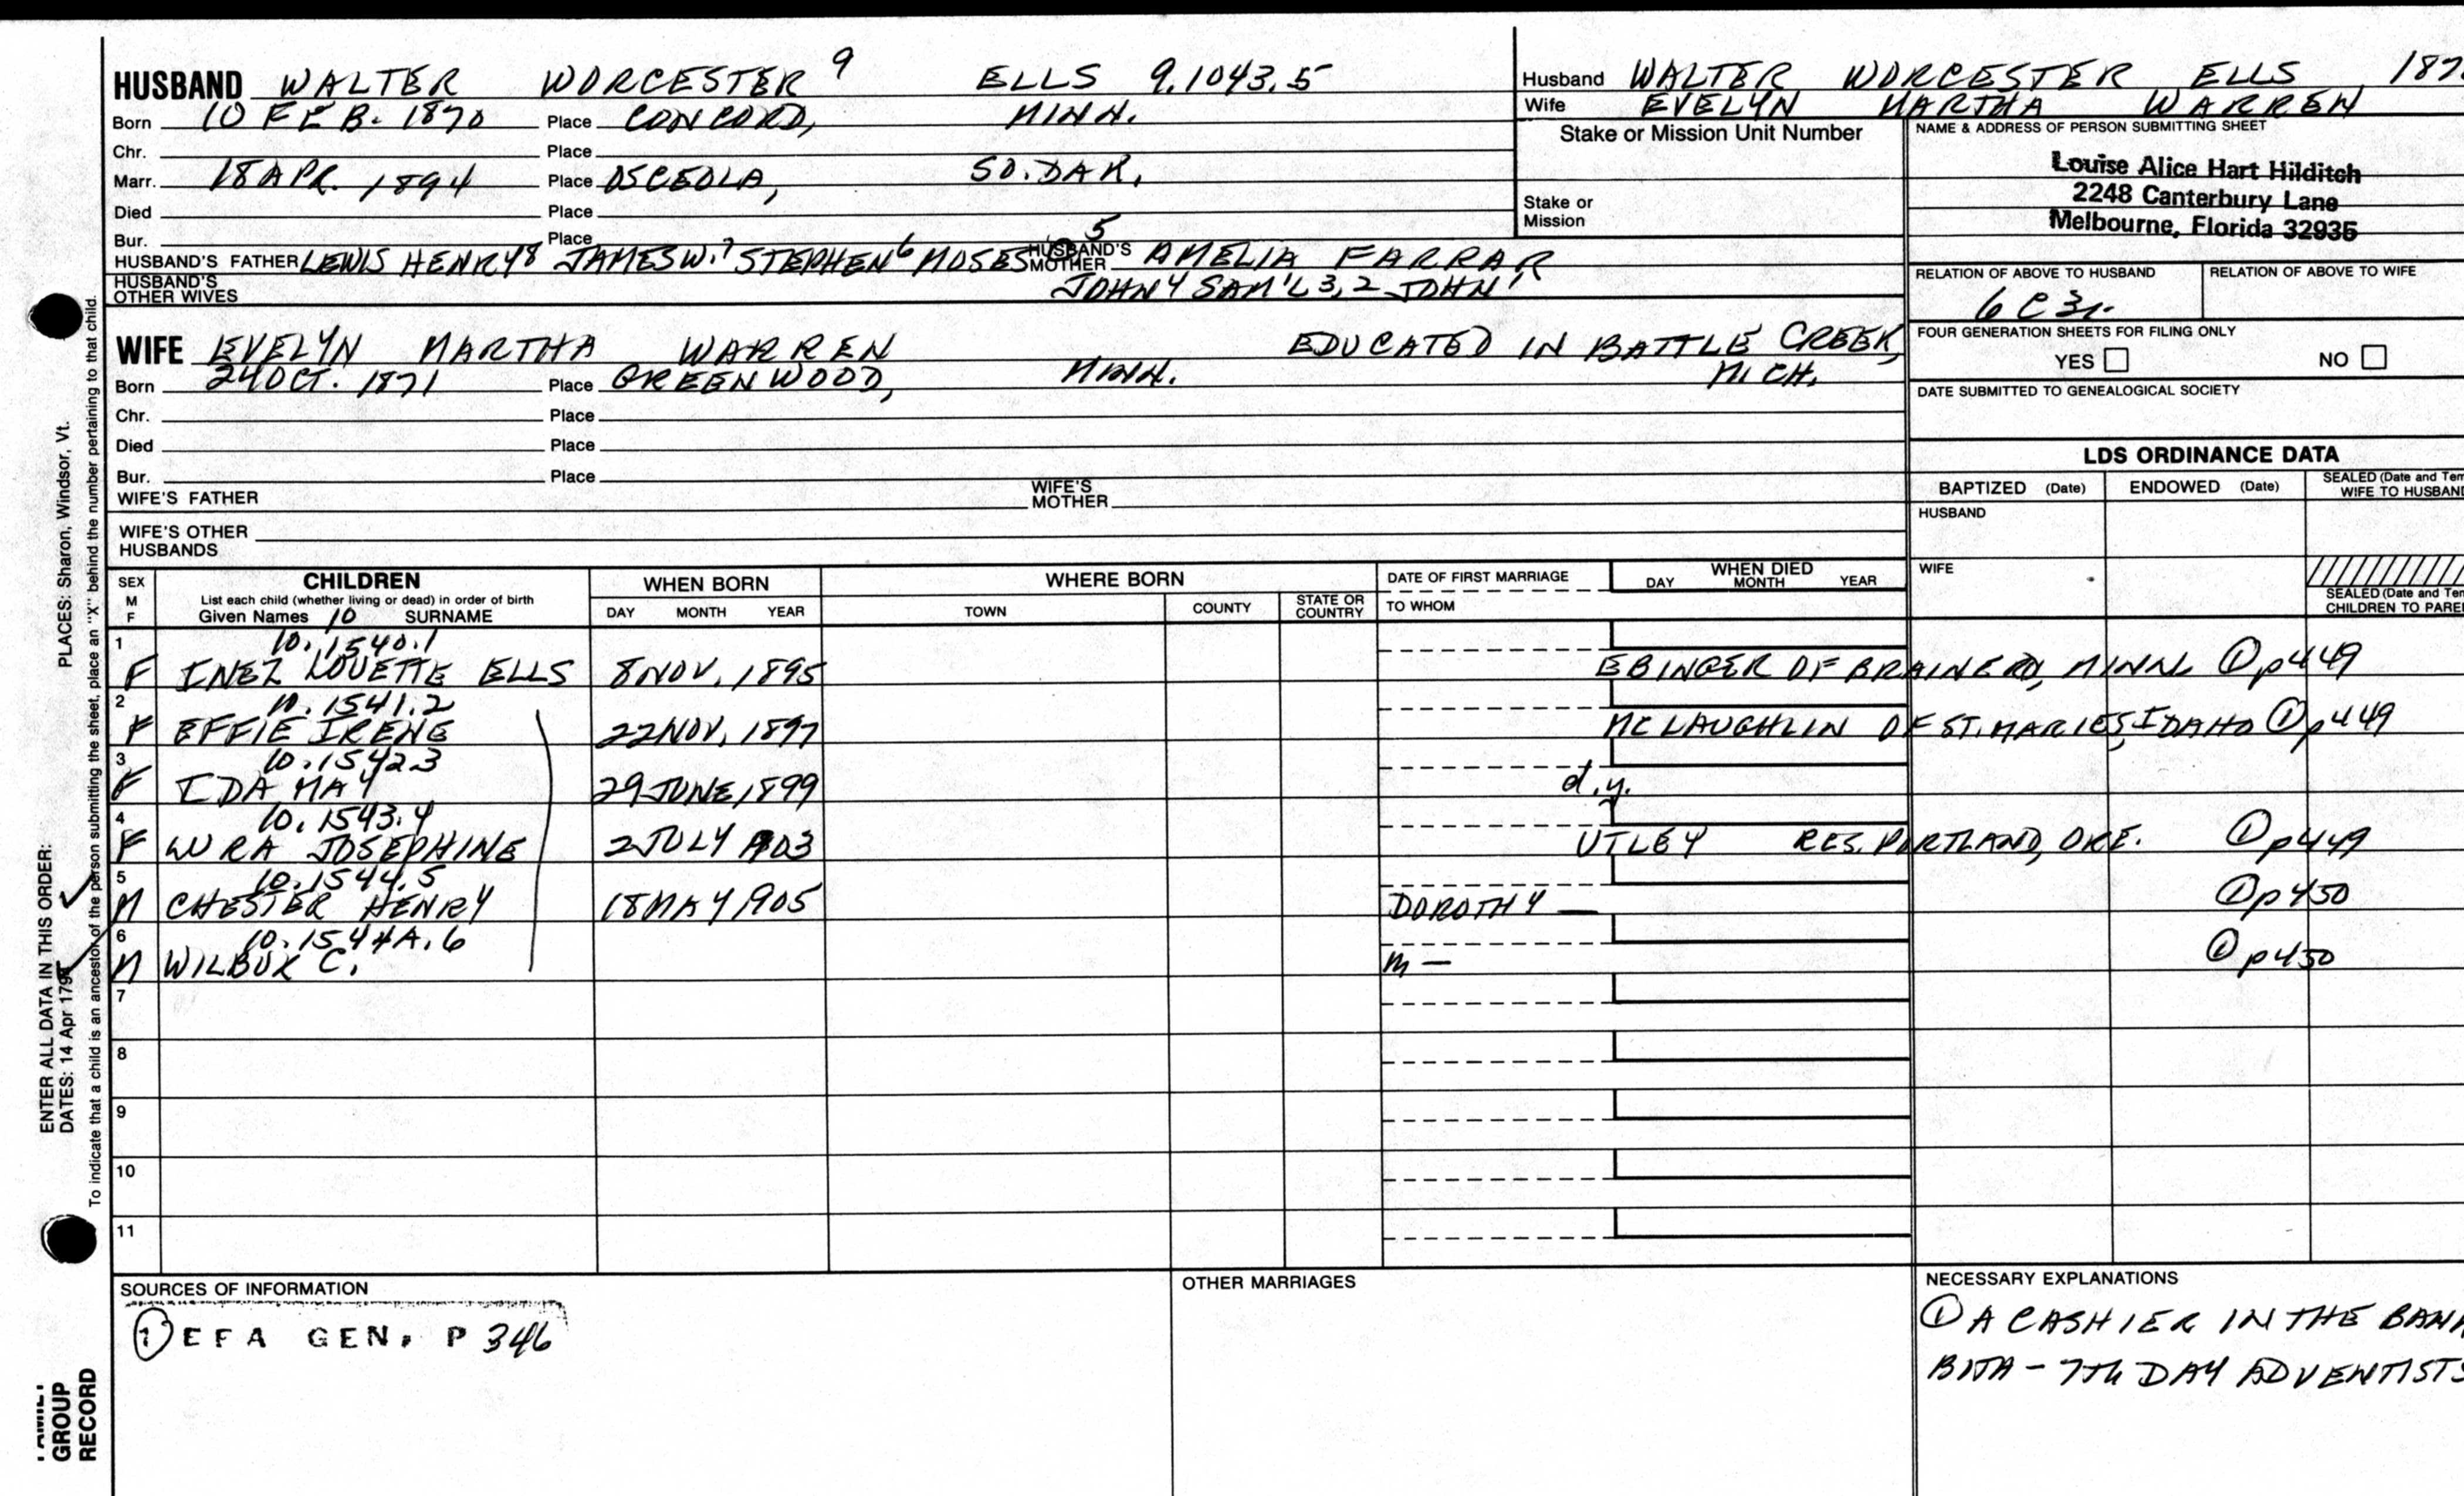 HUSBAND WALTER WORCESTER 9 ELLS 9.1043.5
Born 10 FEB. 1870 Place CONCORD, MINN.
Chr. Place
Marr. 18 APR. 1894 Place OSCEOLA, SO. DAK.
Died Place
Bur. Place
HUSBAND'S FATHER LEWIS HENRY 8 JAMES W. 7 STEPHEN 6 MOSES 5 HUSBAND'S MOTHER AMELIA FARRAR
HUSBAND'S OTHER WIVES JOHN 4 SAM'L 3, 2 JOHN 1
WIFE EVELYN MARTHA WARREN EDUCATED IN BATTLE CREEK,
Born 24 OCT. 1871 Place GREENWOOD, MINN. MICH.
Chr. Place
Died Place
Bur. Place
WIFE'S FATHER WIFE'S MOTHER
WIFE'S OTHER HUSBANDS
Husband WALTER WORCESTER ELLS 187
Wife EVELYN MARTHA WARREN
Stake or Mission Unit Number
Stake or Mission
NAME & ADDRESS OF PERSON SUBMITTING SHEET
Louise Alice Hart Hilditch
2248 Canterbury Lane
Melbourne, Florida 32935
RELATION OF ABOVE TO HUSBAND RELATION OF ABOVE TO WIFE
6 C 3r.
FOUR GENERATION SHEETS FOR FILING ONLY
YES NO
DATE SUBMITTED TO GENEALOGICAL SOCIETY
LDS ORDINANCE DATA
BAPTIZED (Date) ENDOWED (Date) SEALED (Date and Tem
WIFE TO HUSBAND
HUSBAND
WIFE
SEALED (Date and Tem
CHILDREN TO PAREN
SEX M F CHILDREN WHEN BORN WHERE BORN DATE OF FIRST MARRIAGE WHEN DIED
List each child (whether living or dead) in order of birth
Given Names 10 SURNAME DAY MONTH YEAR TOWN COUNTY STATE OR COUNTRY TO WHOM DAY MONTH YEAR
1 10.1540.1
F INEZ LOUETTE ELLS 8 NOV. 1895 EBINGER OF BRAINERD, MINN. ① p449
2 10.1541.2
F EFFIE IRENE 22 NOV. 1897 MCLAUGHLIN OF ST. MARIES, IDAHO ① p449
3 10.1542.3
F IDA MAY 29 JUNE, 1899 d.y.
4 10.1543.4
F JOSEPHINE 2 JULY 1903 UTLEY RES. PORTLAND, ORE. ① p449
5 10.1544.5
M CHESTER HENRY 18 MAY 1905 DOROTHY — ① p450
6 10.1544A.6
M WILBUR C. m — ① p450
7
8
9
10
11
SOURCES OF INFORMATION
① EFA GEN. P 346
OTHER MARRIAGES
NECESSARY EXPLANATIONS
① A CASHIER IN THE BANK
BOTH - 7TH DAY ADVENTISTS
ENTER ALL DATA IN THIS ORDER:
DATES: 14 Apr 1794 PLACES: Sharon, Windsor, Vt.
To indicate that a child is an ancestor of the person submitting the sheet, place an "X" behind the number pertaining to that child.
FAMILY
GROUP
RECORD